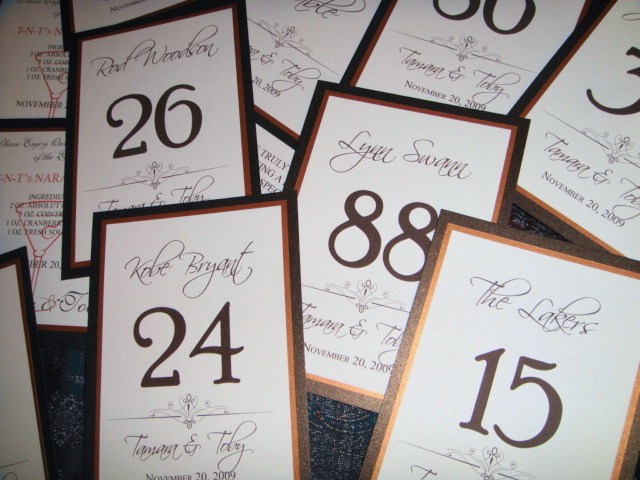 T-N-T's NAR
INGREDI
2 OZ. ABSOL
1 OZ. COINT
1 OZ. CRANB
1 OZ. FRESH
NOVEMBER
Please Enjoy
of the
T-N-T's NARA
INGREDIE
2 OZ. ABSOLUT
1 OZ. COINTR
1 OZ. CRANBERR
1 OZ. FRESH SO
NOVEMBER 20,
& To
Rod Woodson
26
Tamara & Toby
Tamara & Toby
NOVEMBER 20, 2009
TRULY
ING A
SPEC
86
Tamara & Toby
NOVEMBER 20, 2009
3
Tamara & Toby
NOVEMBER 20, 2009
Lynn Swann
88
Tamara & Tob
NOVEMBER 20, 2009
Kobe Bryant
24
Tamara & Toby
NOVEMBER 20, 2009
The Lakers
15